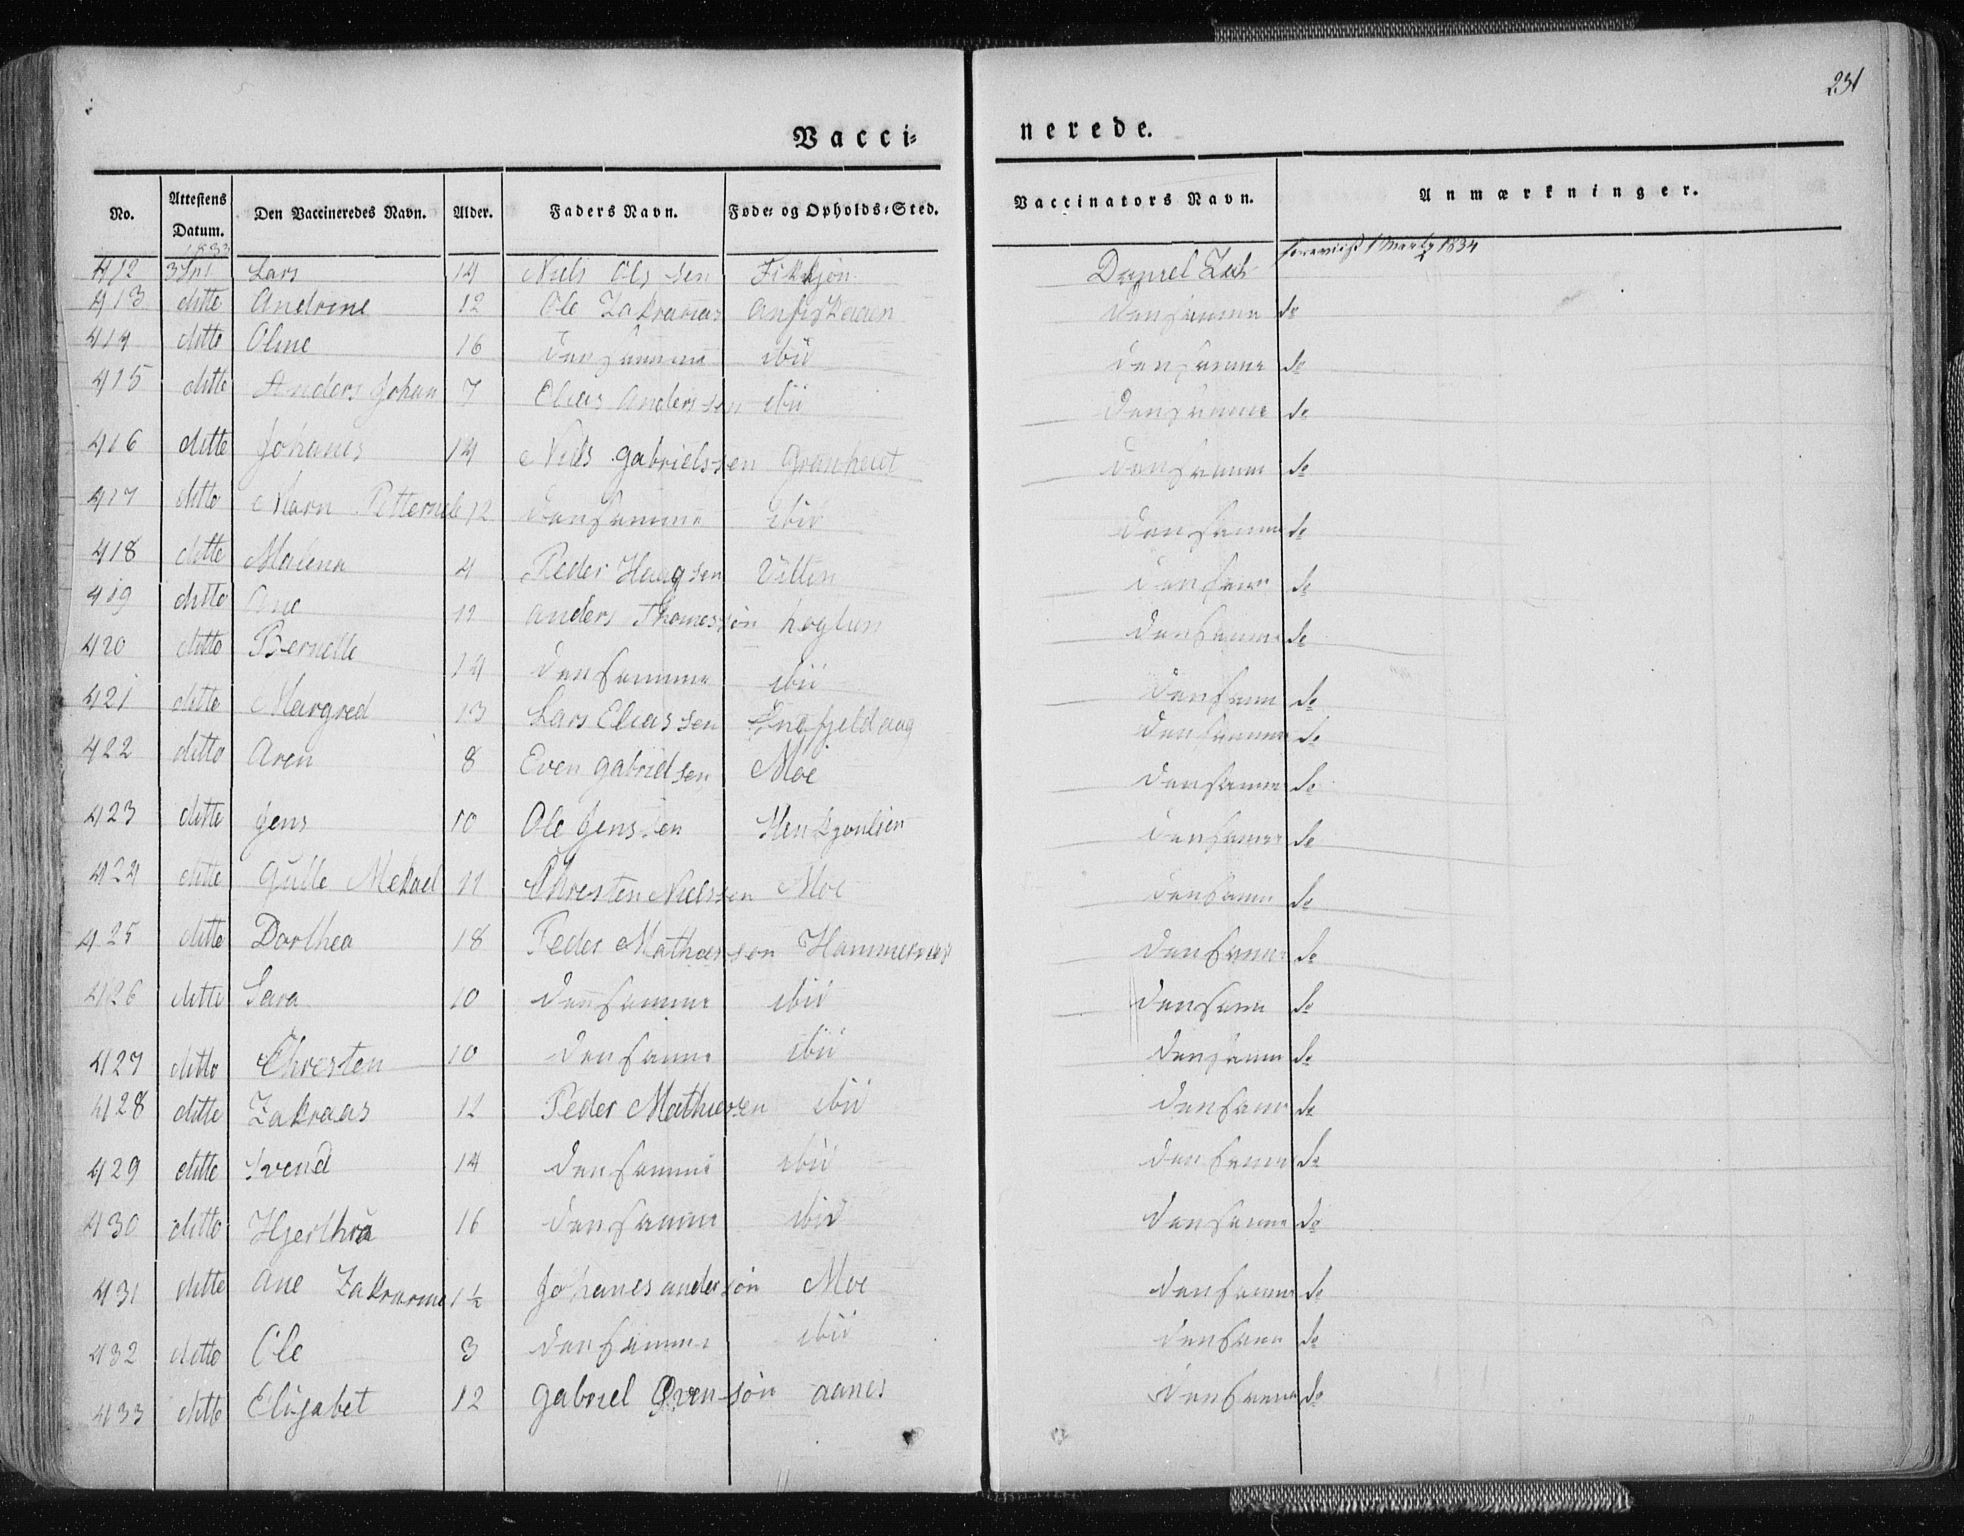 231
Vacci= nerede.
No. Attestens Datum. Den Vaccineredes Navn. Alder. Faders Navn. Føde- og Opholds-Sted. Vaccinators Navn. Anmærkninger.
1833
412 Lars 14 Niels Ols sen Martz 1834
413 ditto Andrine 12 Ole Zakrarias densamme do
414 ditto Oline 16 densamme ibid densamme do
415 ditto Anders Johan 7 Elias Anderssen ibid densamme do
416 ditto Johanes 14 Niels gabrielssen densamme do
417 ditto Marn 12 densamme ibid densamme do
418 ditto Malena 4 Peder Haagsen densamme do
419 ditto Ane anders Thomessøn densamme do
420 ditto Bernelle 14 densamme ibid densamme do
421 ditto Margred 13 Lars Eliassen densamme do
422 ditto Aren 8 Even gabrielsen Moe densamme do
423 ditto Jens 10 Ole Jenssen densamme do
424 ditto Gulle Mekael 11 Chresten Nielssen Moe densamme do
425 ditto Dorthea 18 Peder Mathiessøn densamme do
426 ditto Sara 10 densamme ibid densamme do
427 ditto Chresten 10 densamme ibid densamme do
428 ditto Zakraas 12 Peder Mathiessen ibid densamme do
429 ditto Svend 14 densamme ibid densamme do
430 ditto 16 densamme ibid densamme do
431 ditto Ane 1½ Johanes andersøn Moe densamme do
432 ditto Ole 3 densamme ibid densamme do
433 ditto Elisabet 12 gabriel aanes densamme do